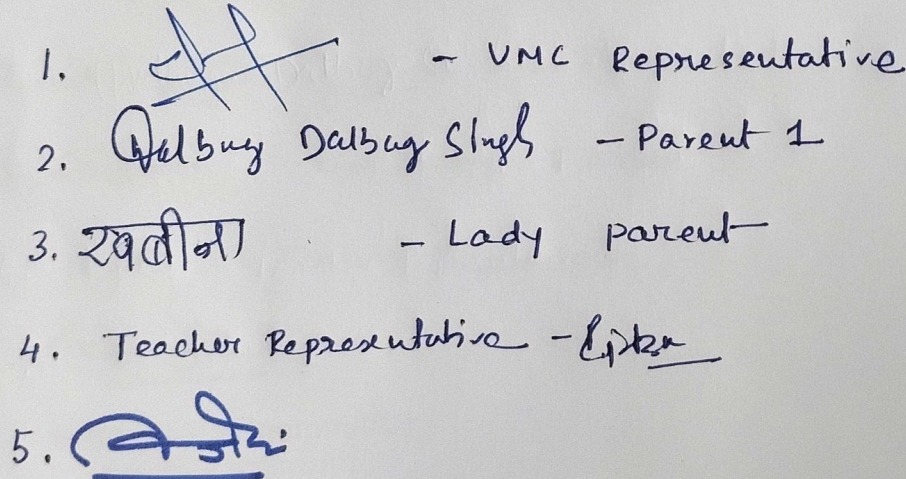 1. - VMC Representative
2. Dalbag Dalbag Singh - Parent 1
3. रवबीना - Lady parent
4. Teacher Representative -
5.